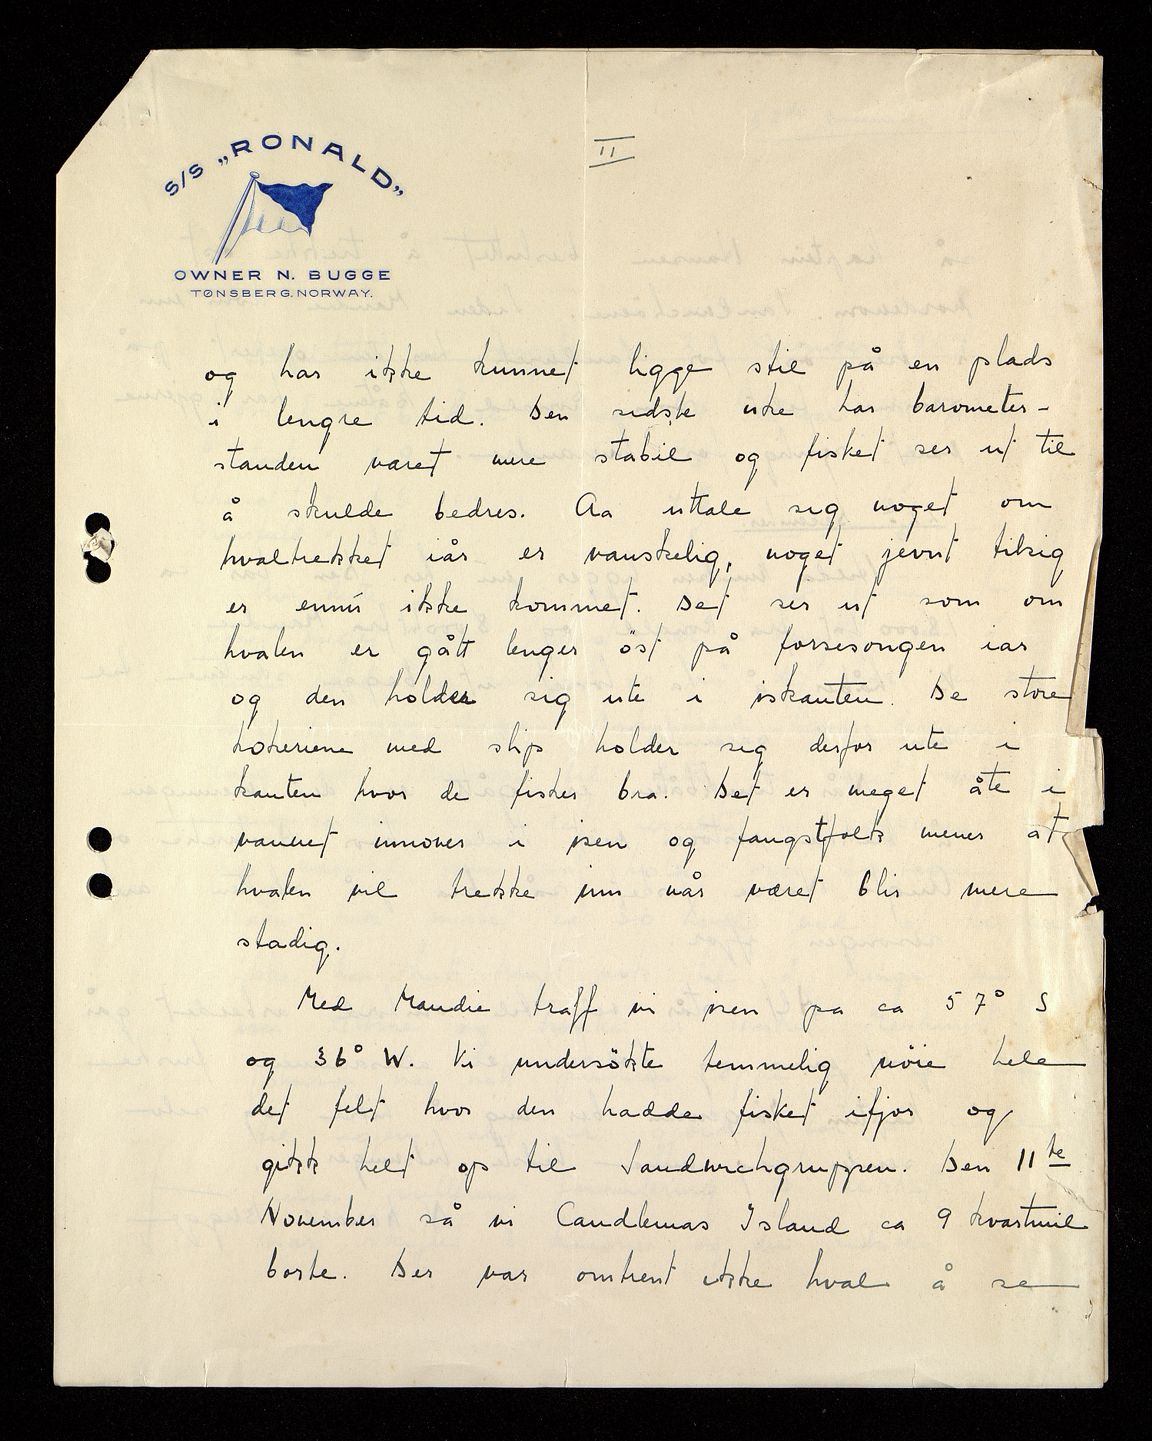 S/S „RONALD”
II
OWNER N. BUGGE
TØNSBERG. NORWAY.
og har ikke kunnet ligge stil på en plads
i lengre tid. Den sidste uke har barometer-
standen været mere stabil og fisket ser ut til
å skulde bedres. Aa uttale sig noget om
hvaltrekket iår er vanskelig, noget jevnt tilsig
er ennu ikke kommet. Det ser ut som om
hvalen er gått lenger öst på forsesongen iar
og den holder sig ute i iskanten. De store
kokeriene med slip holder sig derfor ute i
kanten hvor de fisker bra. Det er meget åte i
vannet innover i isen og fangstfolk mener at
hvalen vil trekke inn når været blir mere
stadig.
Med Maudie traff vi isen pa ca 57° S
og 36° W. Vi undersökte temmelig nöie hele
det felt hvor den hadde fisket ifjor og
gikk helt op til Sandwichgruppen. Den 11te
November så vi Candlemas Island ca 9 kvartmil
borte. Der var omtrent ikke hval å se